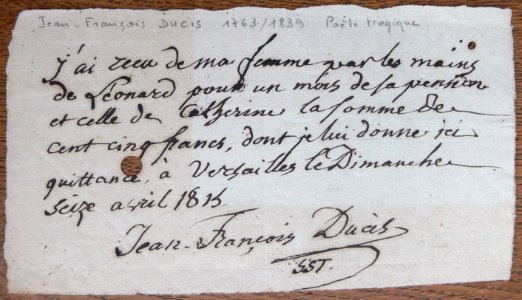 Jean-François Ducis 1763/1839 Poète tragique
j'ai recu de ma femme par les mains
de Léonard pour un mois de sa pension
et celle de Catherine la somme de
cent cinq francs, dont je lui donne ici
quittance, à Versailles le Dimanche
seize avril 1815
Jean-François Ducis
SST.